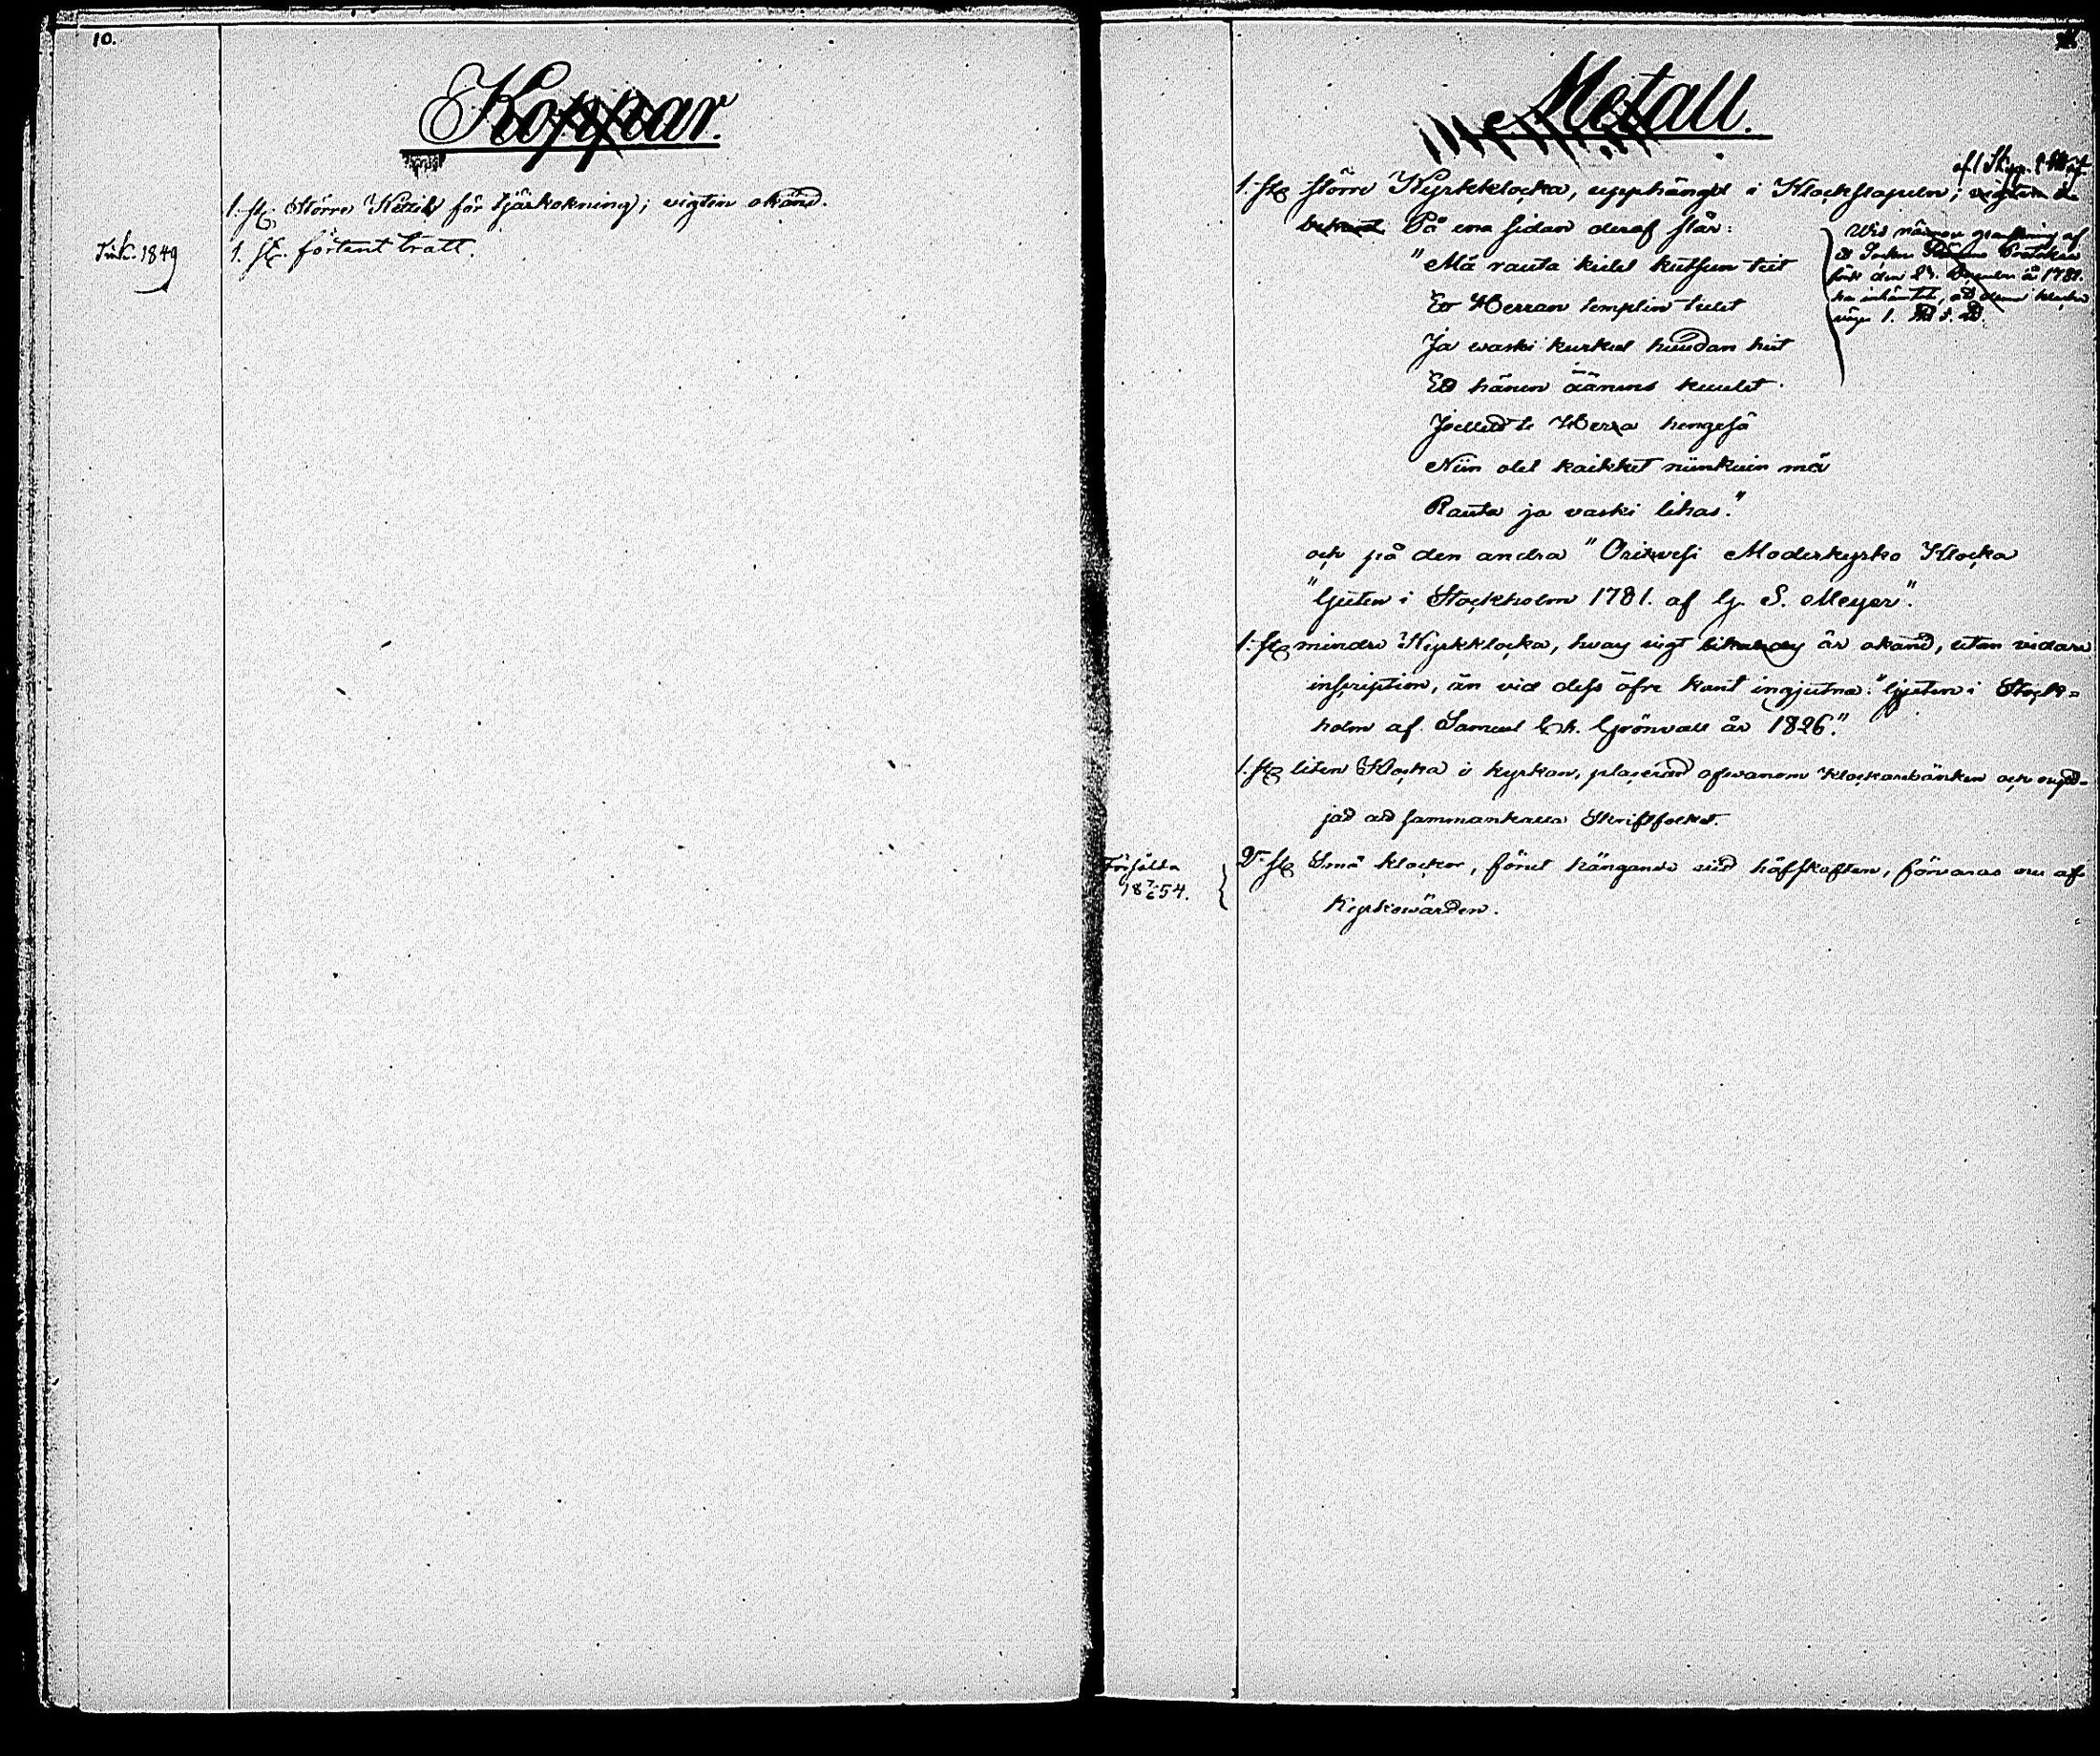 10.
Koppar.
1. st. större Kettil för tjärkokning; vigten okänd.
Ink. 1849
1. st. förtent tratt.
Metall.
1. st större Kyrkklocka, upphängd i Klockstapeln; vigten
bekant. På ena sidan deraf står:
"Mä rauta kielel kutsun teit
Ett Herran templin tulet
Ja waski kurkul huudan hiit
Ett hänen äänens kuulet.
Joelled te Herra hengesä
Niin olet kaikket niinkuin mä
Rauta ja vaski lihas."
Wid närmare granskning af
ett Sockne Protokoll
den 27. December år 1781.
har inhämtats, att denne klocka
väger 1.
och på den andra "Oriwesi Moderkyrko Klocka
"Gjuten i Stockholm 1781. af G. S. Meyer".
1. st mindre Kyrkklocka, hvars vigt är okänd, utan vidare
inscription, än vid dess öfre kant ingjutna: "Gjuten i Stock=
holm af Samuel Grönvall år 1826."
1. st liten Klocka i kyrkan, placerad ofvanom klockarebänken och nytt=
jad att sammankalla Skriftfolket.
Försålda
18 7/6 54.
2. st Små klockor, förut hängande vid håfskaften, förvaras nu af
Kyrkowärden.